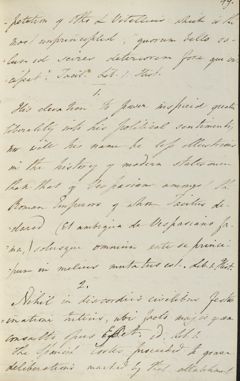 49.
petition of Otho & Vitellius which is the
most unprincipled, "quorum bello so-
lum id scires deteriorem fore qui vi-
cisset": Tacit. Lib. 1. Hist.
1.
His elevation to power inspired great
liberality into his political sentiments,
nor will his name be less illustrious
in the history of modern statesmen
than that of Vespasian among the
Roman Emperors of whom Tacitus de-
clared (Et ambigua de Vespasiano fa-
ma,) solusque omnium ante se princi-
pum in melius mutatus est. Lib. 1. Hist.
2.
Nihil in discordiis civilibus festi-
natione tutius, ubi facto magis quam
consulto opus
the Spanish Cortes proceeded to
deliberations marked by that attachment